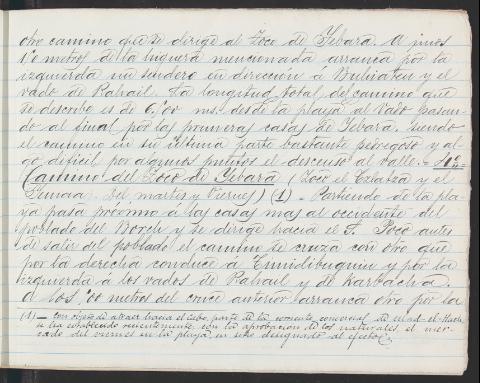 otro camino que se dirige al Zoco de Yebara. A unos
100 metros de la higuera mencionada arranca por la
izquierda un sendero en dirección á Buluiaten y el
vado de Rahail. La longitud total del camino que
se describe es de 6,700 ms. desde la playa al Vado pasan-
do al final por las primeras casas de Yebara, siendo
el camino en su última parte bastante pedregoso y al-
go dificil por algunos metros el descenso al valle. =
Camino del Zoco de Yebara (Zoco el Tzlatza y el
Yemaa. Del martes y Viernes) (1) - Partiendo de la pla-
ya pasa próximo á las casas mas al occidente del
poblado del Bozch y se dirige hacia el S. Poco antes
de salir del poblado el camino se cruza con otro que
por la derecha conduce á Emidibuquiu y por la
izquierda á los vados de Rahail y de Karbacha.
A los 700 metros del cruce anterior arranca otro por la
(1) - Con objeto de atraer hacia el Cabo, parte de la corriente comercial de
se ha establecido recientemente con la aprobación de los naturales, el mer-
cado del viernes en la playa, en sitio designado al efecto.